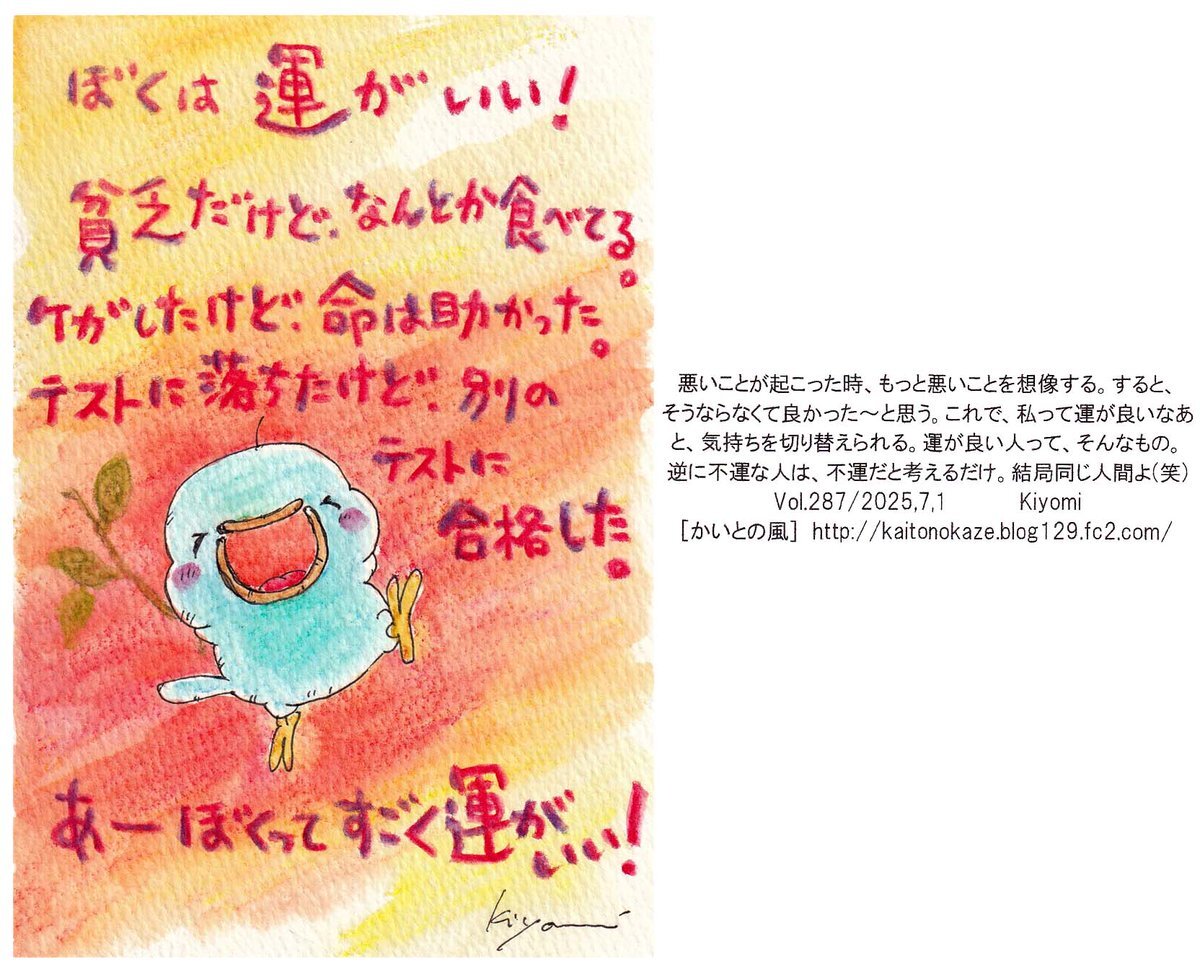 ぼくは運がいい!
貧乏だけど、なんとか食べてる。
ケガしたけど、命は助かった。
テストに落ちたけど、別の
テストに
合格した。
あーぼくってすごく運が
いい!
Kiyomi
悪いことが起こった時、もっと悪いことを想像する。すると、
そうならなくて良かった～と思う。これで、私って運が良いなあ
と、気持ちを切り替えられる。運が良い人って、そんなもの。
逆に不運な人は、不運だと考えるだけ。結局同じ人間よ(笑)
Vol.287/2025,7,1 Kiyomi
[かいとの風] http://kaitonokaze.blog129.fc2.com/